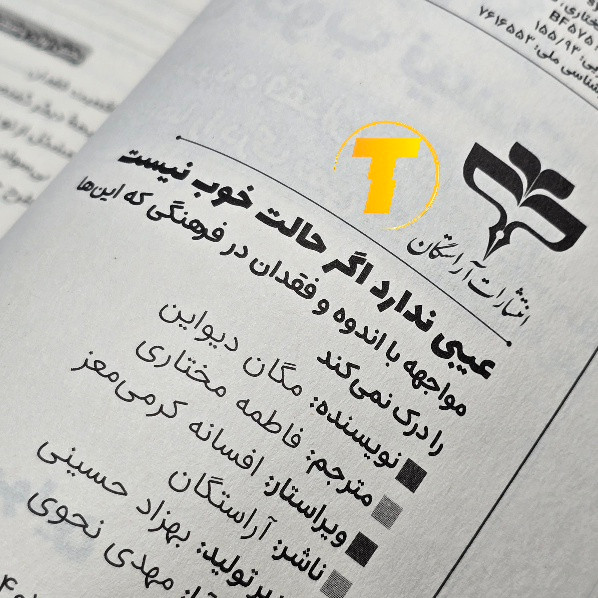 BF۵۷۵
۱۵۵/۹۳
شناسی ملی: ۷۶۱۶۵۵۳
T
انتشارات آراستگان
عیبی ندارد اگر حالت خوب نیست
مواجهه با اندوه و فقدان در فرهنگی که این‌ها
را درک نمی‌کند
نویسنده: مگان دیواین
مترجم: فاطمه مختاری
ویراستار: افسانه کرمی‌معز
ناشر: آراستگان
تولید: بهزاد حسینی
مهدی نحوی